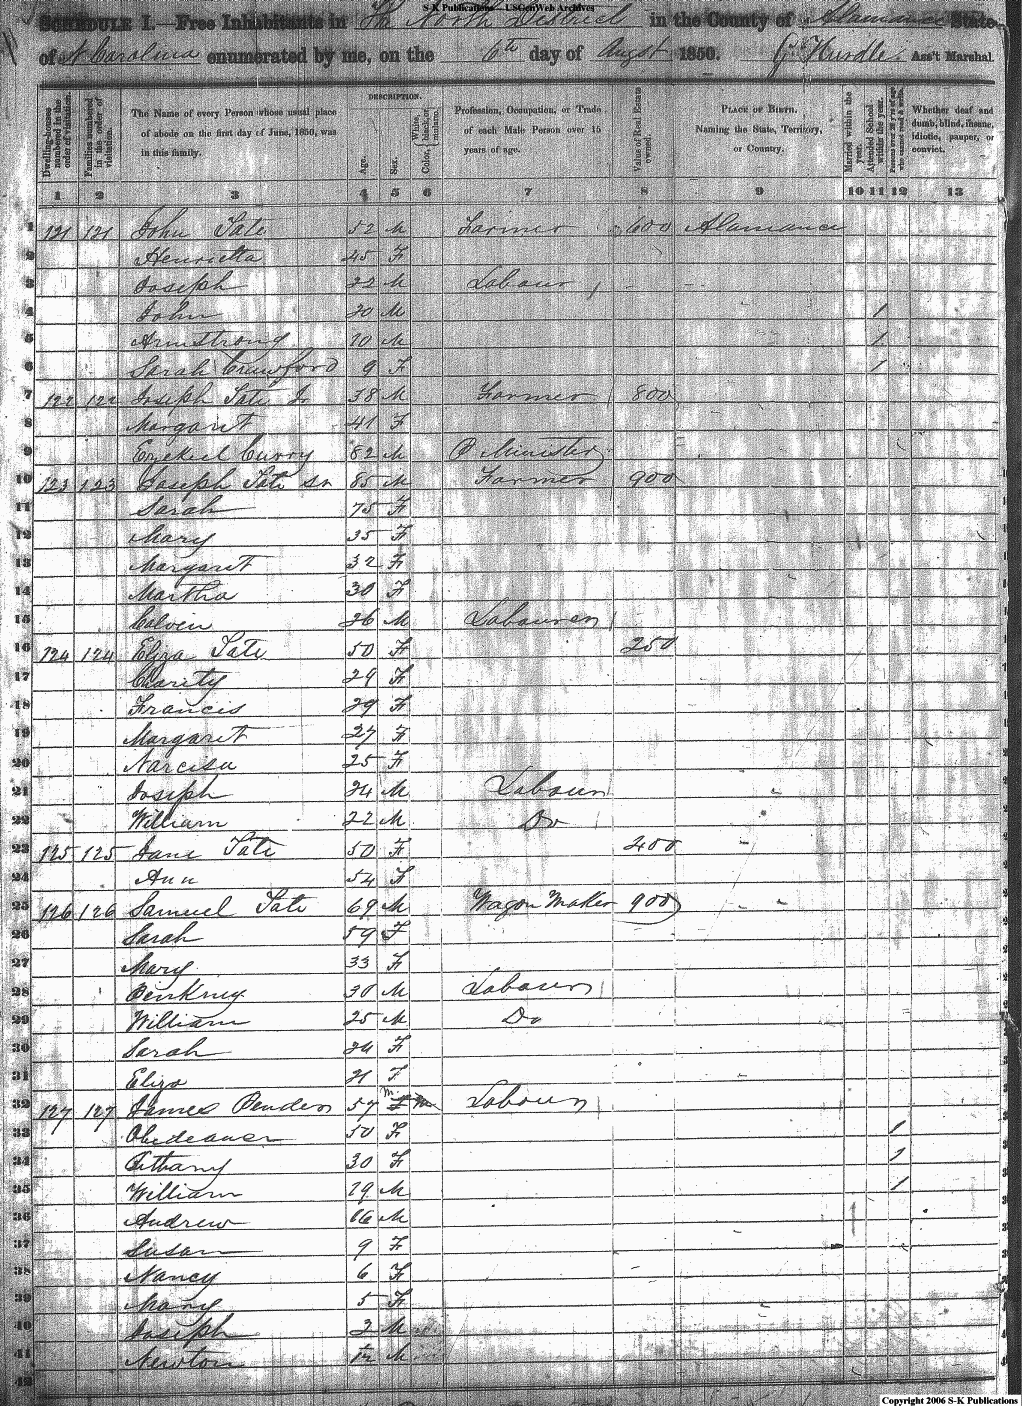 S-K Publications - USGenWeb Archives
SCHEDULE I.—Free Inhabitants in The North District in the County of Alamance State
of N Carolina enumerated by me, on the 6th day of Augst 1850. G. Hurdle Ass't Marshal.
Dwelling-houses numbered in the order of visitation.
Families numbered in the order of visitation.
The Name of every Person whose usual place of abode on the first day of June, 1850, was in this family.
DESCRIPTION.
Age.
Sex.
Color, White, black, or mulatto.
Profession, Occupation, or Trade of each Male Person over 15 years of age.
Value of Real Estate owned.
PLACE OF BIRTH. Naming the State, Territory, or Country.
Married within the year.
Attended School within the year.
Persons over 20 y'rs of age who cannot read & write.
Whether deaf and dumb, blind, insane, idiotic, pauper, or convict.
1 2 3 4 5 6 7 8 9 10 11 12 13
1 121 121 John Tate 52 M Farmer 600 Alamance
2 Henrietta 45 F
3 Joseph 22 M Labour
4 John 20 M 1
5 Armstrong 10 M 1
6 Sarah Crawford 9 F 1
7 122 122 Joseph Tate Jr 38 M Farmer 800
8 Margaret 41 F
9 Ezekiel Curry 82 M P Minister
10 123 123 Joseph Tate sr 85 M Farmer 900
11 Sarah 75 F
12 Mary 35 F
13 Margaret 32 F
14 Martha 30 F
15 Calven 26 M Labourer
16 124 124 Eliza Tate 50 F 250
17 Charity 29 F
18 Francis 29 F
19 Margaret 27 F
20 Narcisa 25 F
21 Joseph 24 M Labour
22 William 22 M Do
23 125 125 Jane Tate 50 F 400
24 Ann 54 F
25 126 126 Samuel Tate 69 M Wagon Maker 900
26 Sarah 59 F
27 Mary 33 F
28 Penkney 30 M Labour
29 William 25 M Do
30 Sarah 24 F
31 Eliza 21 F
32 127 127 James Penders 57 M F M Labour
33 50 F 1
34 30 F 1
35 William 19 M 1
36 Andrew 16 M
37 Susan 9 F
38 Nancy 6 F
39 Mary 5 F
40 Joseph 2 M
41 Newton M
42
Copyright 2006 S-K Publications